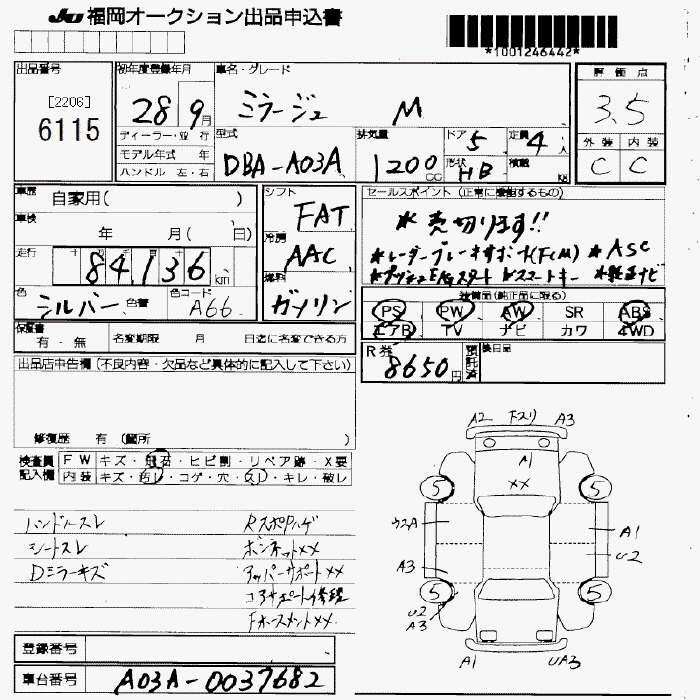 JU 福岡オークション出品申込書
*1001246442*
出品番号
[2206]
6115
初年度登録年月
28 9月
ディーラー・並 行
モデル年式 年
ハンドル 左・右
車名・グレード
ミラージュ M
型式
DBA-A03A
排気量
1200cc
ドア 5
定員 4人
形状 HB
積載 kg
評価点
3.5
外装 内装
C C
車歴 自家用( )
車検 年 月( 日)
走行 84,136 km
色 シルバー 色替
色コード A66
シフト
FAT
冷房
AAC
燃料
ガソリン
セールスポイント (正常に機能するもの)
*売切ります!!
*レーダーブレーキサポート(FCM) *ASC
*プッシュENGスタート *スマートキー *純正ナビ
装備品(純正品に限る)
PS PW AW SR ABS
エアB TV ナビ カワ 4WD
保証書 有・無
名変期限 月 日迄に名変できる方
R券 8650円
預託済
後日品
出品店申告欄 (不良内容・欠品など具体的に記入して下さい)
修復歴 有 (箇所 )
検査員記入欄
FW キズ・飛石・ヒビ割・リペア跡・X要
内装 キズ・汚レ・コゲ・穴・スレ・キレ・破レ
ハンドルスレ
シートスレ
Dミラーキズ
RスポPハゲ
ボンネット××
アッパーサポート××
コアサポート修理
Fホースメント××
A2 下スリ A3
A1
××
5 5
ウスA
A1
U2
A3
5 5
U2
A3
A1 UA3
登録番号
車台番号 A03A-0037682